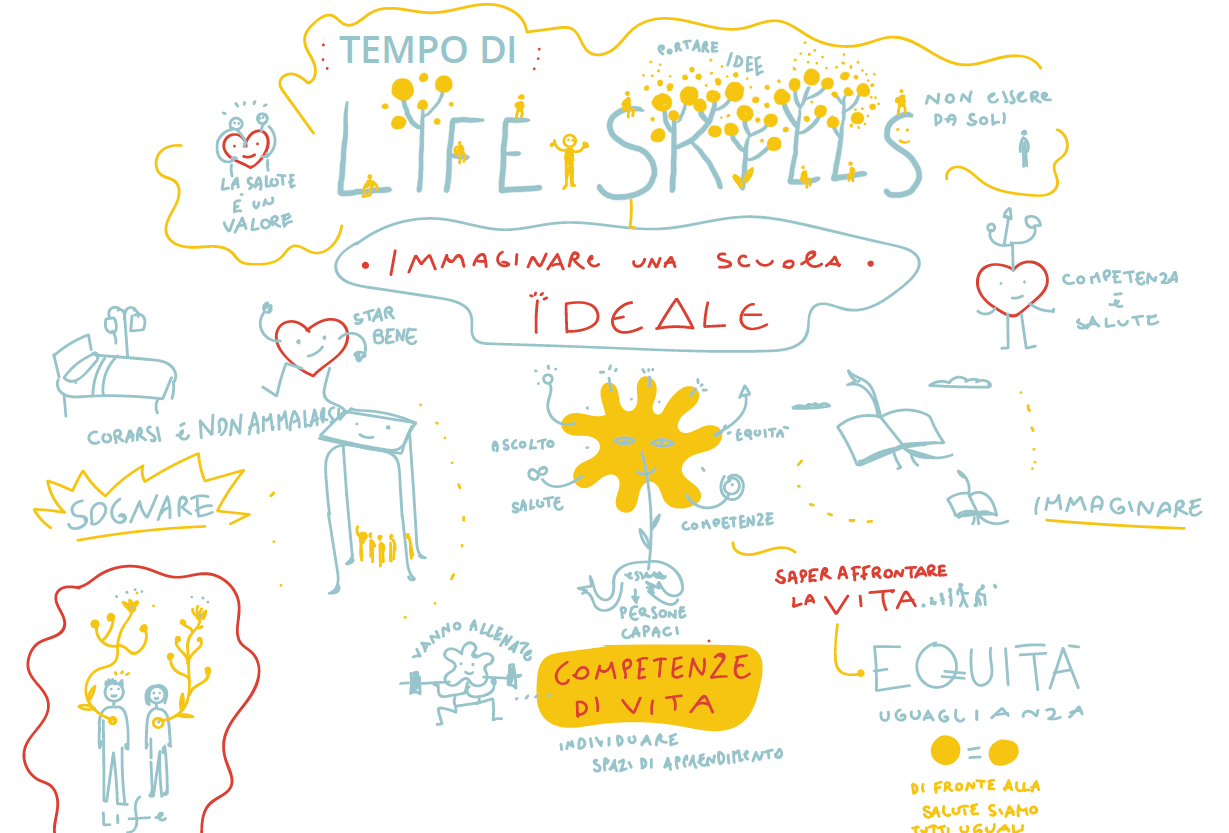 TEMPO DI
LIFE SKILLS
PORTARE
IDEE
NON ESSERE
DA SOLI
LA SALUTE
È UN
VALORE
IMMAGINARE UNA SCUOLA
IDEALE
COMPETENZA
È
SALUTE
STAR
BENE
CURARSI È NON AMMALARSI
SOGNARE
ASCOLTO
EQUITÀ
SALUTE
COMPETENZE
IMMAGINARE
PERSONE
CAPACI
SAPER AFFRONTARE
LA VITA
VANNO ALLENATE
COMPETENZE
DI VITA
INDIVIDUARE
SPAZI DI APPRENDIMENTO
EQUITÀ
UGUAGLIANZA
=
DI FRONTE ALLA
SALUTE SIAMO
TUTTI UGUALI
Life